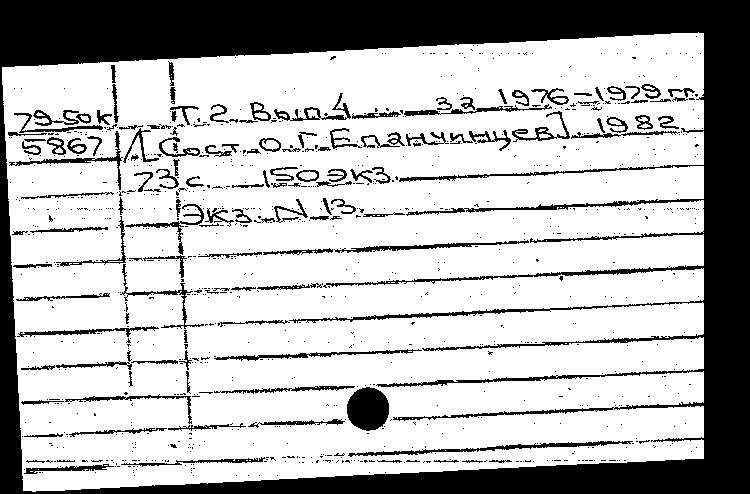 79-50к Т. 2. Вып. 4 ... за 1976-1979 гг.
5867 /[Сост. О. Г. Епанчинцев]. 1982.
73 с. 150 экз.
Экз. N 13.